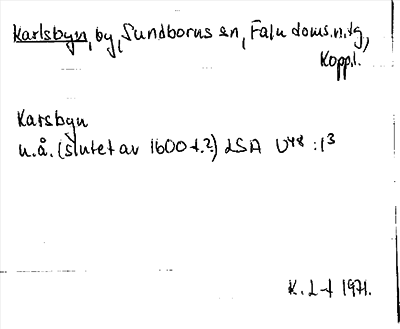 Karlsbyn, by, Sundborns sn, Falu doms.n.tg,
Kopp.l.
Karsbyn
u.å. (slutet av 1600-t.?) LSA U48:1³
K. L-t 1971.